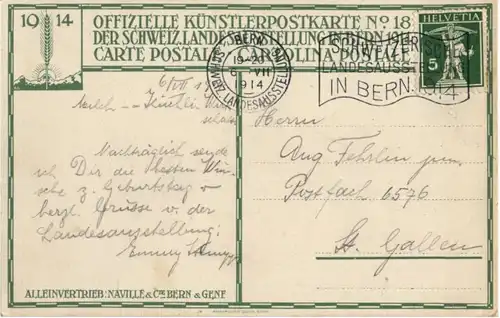 19 14
OFFIZIELLE KÜNSTLERPOSTKARTE No. 18
DER SCHWEIZ. LANDESAUSSTELLUNG IN BERN 1914
CARTE POSTALE CARTOLINA POSTALE
HELVETIA
5
BERN
LANDESAUSSTELLUNG
19-20
6. VII
1914
SCHWEIZERISCHE
LANDESAUSSTELLUNG
IN BERN. 1914
6/VII 14
Nachträglich sende
ich Dir die besten Wün-
sche z. Geburtstag &
herzl. Grüsse v. der
Landesausstellung.
Emmy
Herrn
Aug Fehrlin jun.
Postfach 6576
St. Gallen
ALLEINVERTRIEB: NAVILLE & Cie BERN & GENF